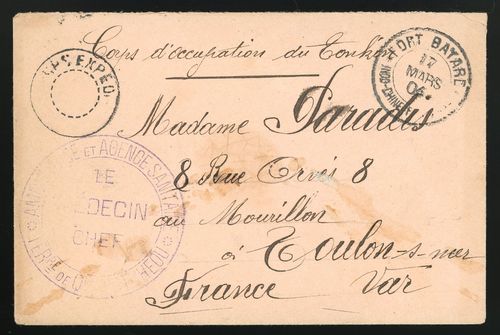 Corps d'occupation du Tonkin
CORPS EXPED.
FORT BAYARD
17
MARS
04
CHINE
Madame Paradis
8 Rue Orvès 8
au Mourillon
à Toulon-s-mer
France Var
AMBULANCE ET AGENCE SANIT
LE
MEDECIN
CHEF